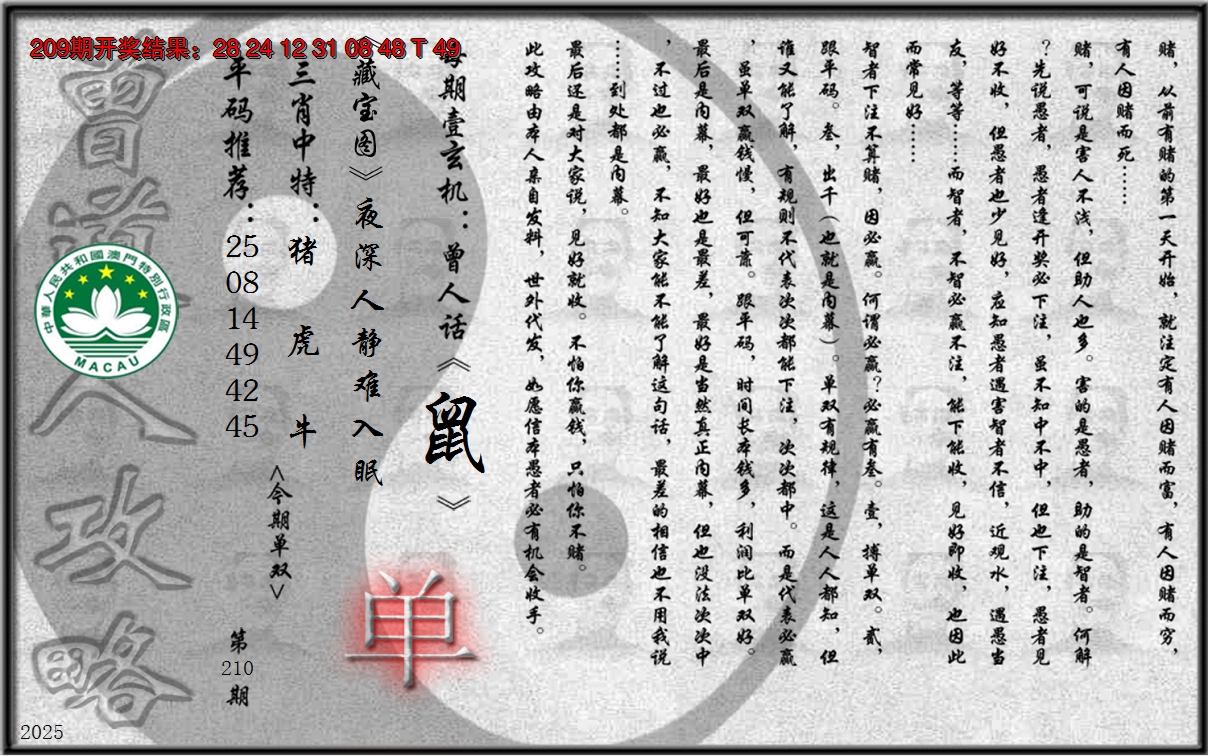 209期开奖结果：28 24 12 31 08 48 T 49
赌，从前有赌的第一天开始，就注定有人因赌而富，有人因赌而穷，
有人因赌而死……
赌，可说是害人不浅，但助人也多。害的是愚者，助的是智者。何解
？先说愚者，愚者逢开奖必下注，虽不知中不中，但也下注，愚者见
好不收，但愚者也少见好，应知愚者遇害智者不信，近观水，遇愚当
友，等等……而智者，不智必赢不注，能下能收，见好即收，也因此
而常见好……
智者下注不算赌，因必赢。何谓必赢？必赢有叁。壹，搏单双。贰，
跟平码。叁，出千（也就是内幕）。单双有规律，这是人人都知，但
谁又能了解，有规则不代表次次都能下注，次次都中。而是代表必赢
，虽单双赢钱慢，但可靠。跟平码，时间长本钱多，利润比单双好。
最后是内幕，最好也是最差，最好是当然真正内幕，但也没法次次中
，不过也必赢，不知大家能不能了解这句话，最差的相信也不用我说
……到处都是内幕。
最后还是对大家说，见好就收。不怕你赢钱，只怕你不赌。
此攻略由本人亲自发料，世外代发，如愿信本愚者必有机会收手。
每期壹玄机：曾人话《鼠》
《藏宝图》夜深人静难入眠
单
三肖中特：猪 虎 牛
<今期单双>
平码推荐：25 08 14 49 42 45
第210期
曾道人攻略
中華人民共和國澳門特別行政區
MACAU
2025